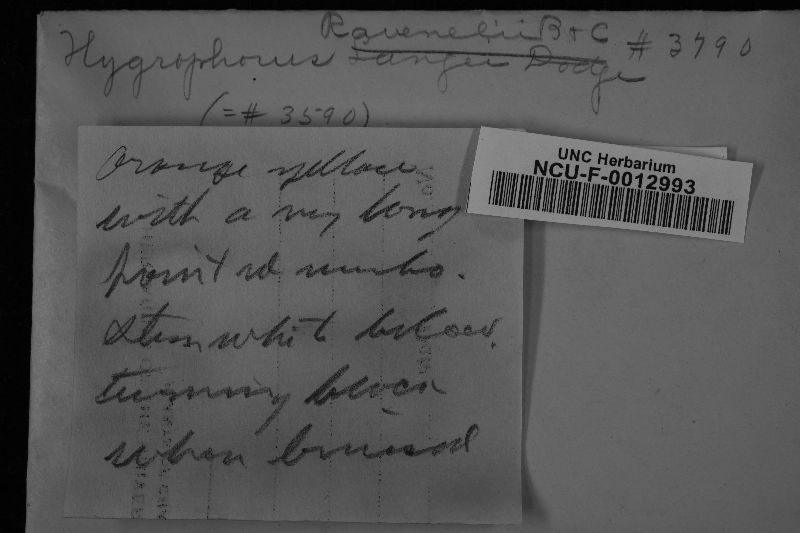 Ravenelii B + C # 3790
Hygrophorus Langei Dodge
(= # 3590)
UNC Herbarium
NCU-F-0012993
Orange yellow
with a very long
pointed umbo.
Stem white below,
turning black
when bruised